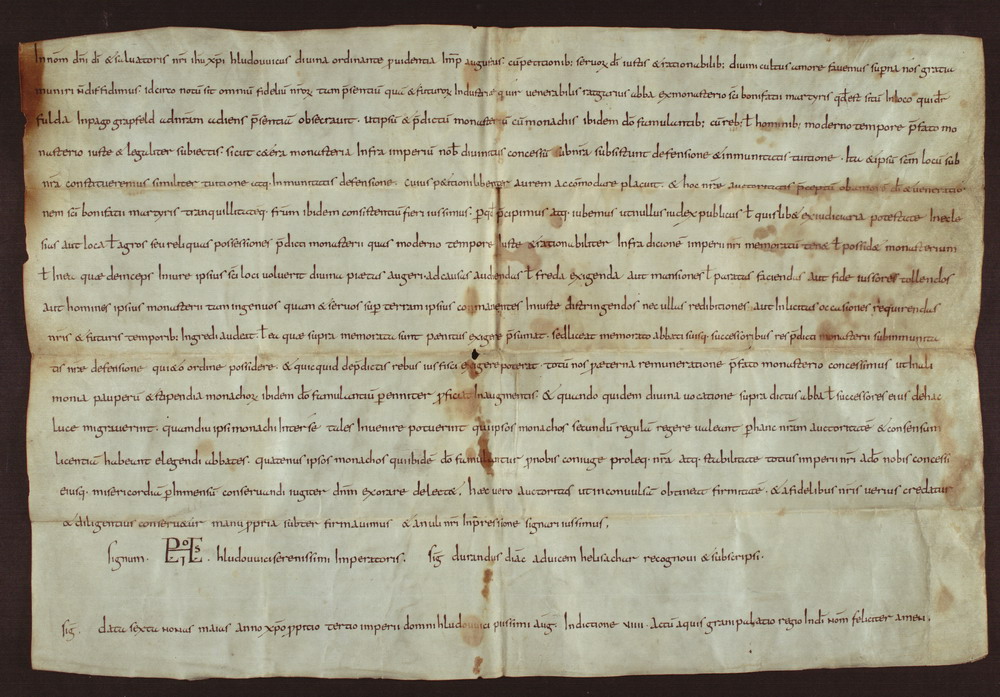 In nom dni di & saluatoris nri ihu xpi hludouuicus diuina ordinante puidentia Imp augustus. cu petitionib; seruoꝝ di iustis & rationabilib; diuini cultus amore fauemus supna nos gratia
muniri n diffidimus. idcirco notu sit omniu fideliu nroꝝ tam p̄sentiu qua & futuroꝝ Industrie quia uenerabilis ratgarius abba ex monasterio sci bonifatii martyris qd est situ In loco qui dr
fulda In pago grapfeld ad nram adiens p̄sentia obsecrauit. ut ipsu & p̄dictu monasteriu cu monachis ibidem do famulantib; cu reb; ł hominib; moderno tempore p̄fato mo
nasterio iuste & legaliter subiectis. sicut c&era monasteria Infra imperiu nob diuinitus concessu sub nra subsistunt defensione & inmunitatis tuitione. Ita & ipsu scm locu sub
nra constitueremus similiter tuitione atq; Inmunitatis defensione. Cuius p&itioni libenter aurem accomodare placuit. & hoc nræ auctoritatis p̄ceptu ob amore di & ueneratio
nem sci bonifatii martyris. tranquillitateq; frum ibidem consistentiu fieri iussimus. p qd p̄cipimus atq; iubemus ut nullus iudex publicus ł quislib& ex iudiciaria potestate In eccle
sias aut loca ł agros seu reliquas possessiones p̄dicti monasterii quas moderno tempore Iuste & rationabiliter Infra dicione imperii nri memoratu ten& ł possid& monasterium
ł In ea quæ deinceps In iure ipsius sci loci uoluerit diuina pietas augeri. ad causas audiendas ł freda exigenda aut mansiones ł paratas faciendas aut fideiussores tollendos
aut homines ipsius monasterii tam ingenuos quam & seruos sup terram ipsius commanentes Iniuste distringendos nec ullas redibitiones aut Inlicitas occasiones requirendas
nris & futuris temporib; Ingredi audeat. ł ea quæ supra memorata sunt pænitus exigere p̄sumat. sed liceat memorato abbati suisq; successoribus res p̄dicti monasterii sub immunita
tis nræ defensione qui&o ordine possidere. & quicquid de p̄dictis rebus ius fisci exigere poterat. totu nos p æterna remuneratione p̄fato monasterio concessimus ut In ali
monia pauperu & stipendia monachoꝝ ibidem do famulantiu penniter pficiat In augmentis. & quando quidem diuina uocatione supra dictus abba ł successores eius de hac
luce migrauerint. quamdiu ipsi monachi Inter se tales Inuenire potuerint qui ipsos monachos secundu regula regere ualeant p hanc nram auctoritate & consensum
licentia habeant elegendi abbates. quatenus ipsos monachos qui ibide do famulantur p nobis coniuge proleq; nra atq; stabilitate totius imperii nri a do nobis concessi
eiusq; misericordia p Inmensu conseruandi iugiter dnm exorare delect&. haec uero auctoritas ut inconuulsa obtineat firmitate. & a fidelibus nris uerius credatur
& diligentius conseru&ur manu ppria subter firmauimus & anuli nri Inpressione signari iussimus.
Signum. hludouuici serenissimi Imperatoris. Sig durandus diac aduicem helisachar recognoui & subscripsi.
Sig. data sexta nonas maias anno xpo ppitio tertio imperii domni hludouuici piissimi aug. Indictione uiiii. Actu aquisgrani palatio regio In di nom feliciter amen.